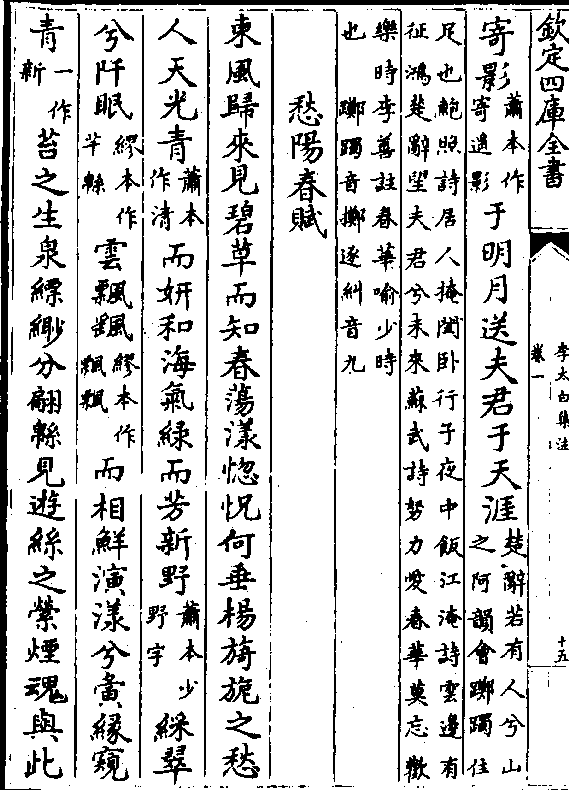 欽定四庫全書
李太白集注
卷一
十五
寄影蕭本作寄遥影于明月送夫君于天涯楚辭若有人兮山之阿韻會躑躅住
足也鮑照詩居人掩閨卧行子夜中飯江淹詩雲邊有
征鴻楚辭望夫君兮未來蘇武詩努力愛春華莫忘歡
樂時李善註春華喻少時
也 躑躅音擲逐糾音九
愁陽春賦
東風歸來見碧草而知春蕩漾惚怳何垂楊旖旎之愁
人天光青蕭本作清而妍和海氣緑而芳新野蕭本少野字綵翠
兮阡眠繆本作芊緜雲飄飖繆本作飄飄而相鮮演漾兮夤緣窺
青一作新苔之生泉縹緲兮翩緜見遊絲之縈煙魂與此